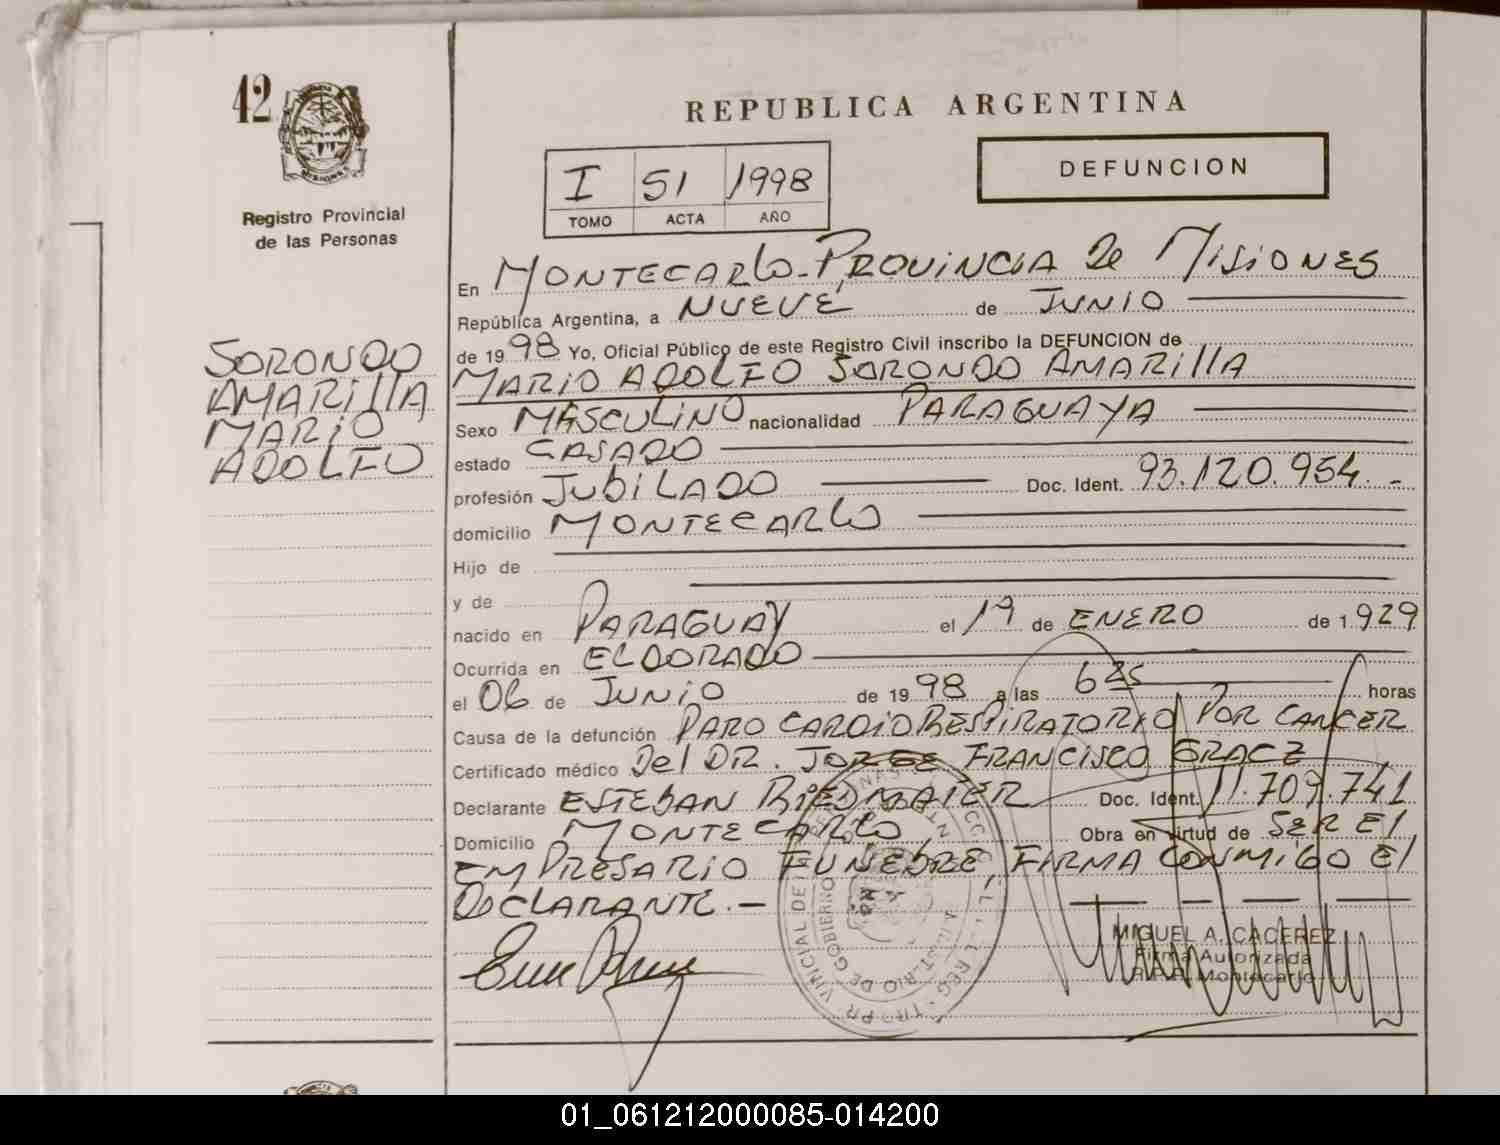 42
Registro Provincial
de las Personas
SORONDO
AMARILLA
MARIO
ADOLFO
REPUBLICA ARGENTINA
I 51 1998
TOMO ACTA AÑO
DEFUNCION
En MONTECARLO - PROVINCIA de MISIONES
República Argentina, a NUEVE de JUNIO
de 1998 Yo, Oficial Público de este Registro Civil inscribo la DEFUNCION de
MARIO ADOLFO SORONDO AMARILLA
Sexo MASCULINO nacionalidad PARAGUAYA
estado CASADO
profesión JUBILADO Doc. Ident. 93.120.954.-
domicilio MONTECARLO
Hijo de
y de
nacido en PARAGUAY el 19 de ENERO de 1.929
Ocurrida en ELDORADO
el 06 de JUNIO de 1998 a las 6 25 horas
Causa de la defunción PARO CARDIO RESPIRATORIO POR CANCER
Certificado médico Del DR. JORGE FRANCISCO
Declarante ESTEBAN RIEDMAIER Doc. Ident. 11.709.741
Domicilio MONTECARLO Obra en virtud de SER El
EMPRESARIO FUNEBRE, FIRMA CONMIGO El
DECLARANTE.-
MIGUEL A. CACEREZ
Firma Autorizada
R.P.P. Montecarlo
01_061212000085-014200